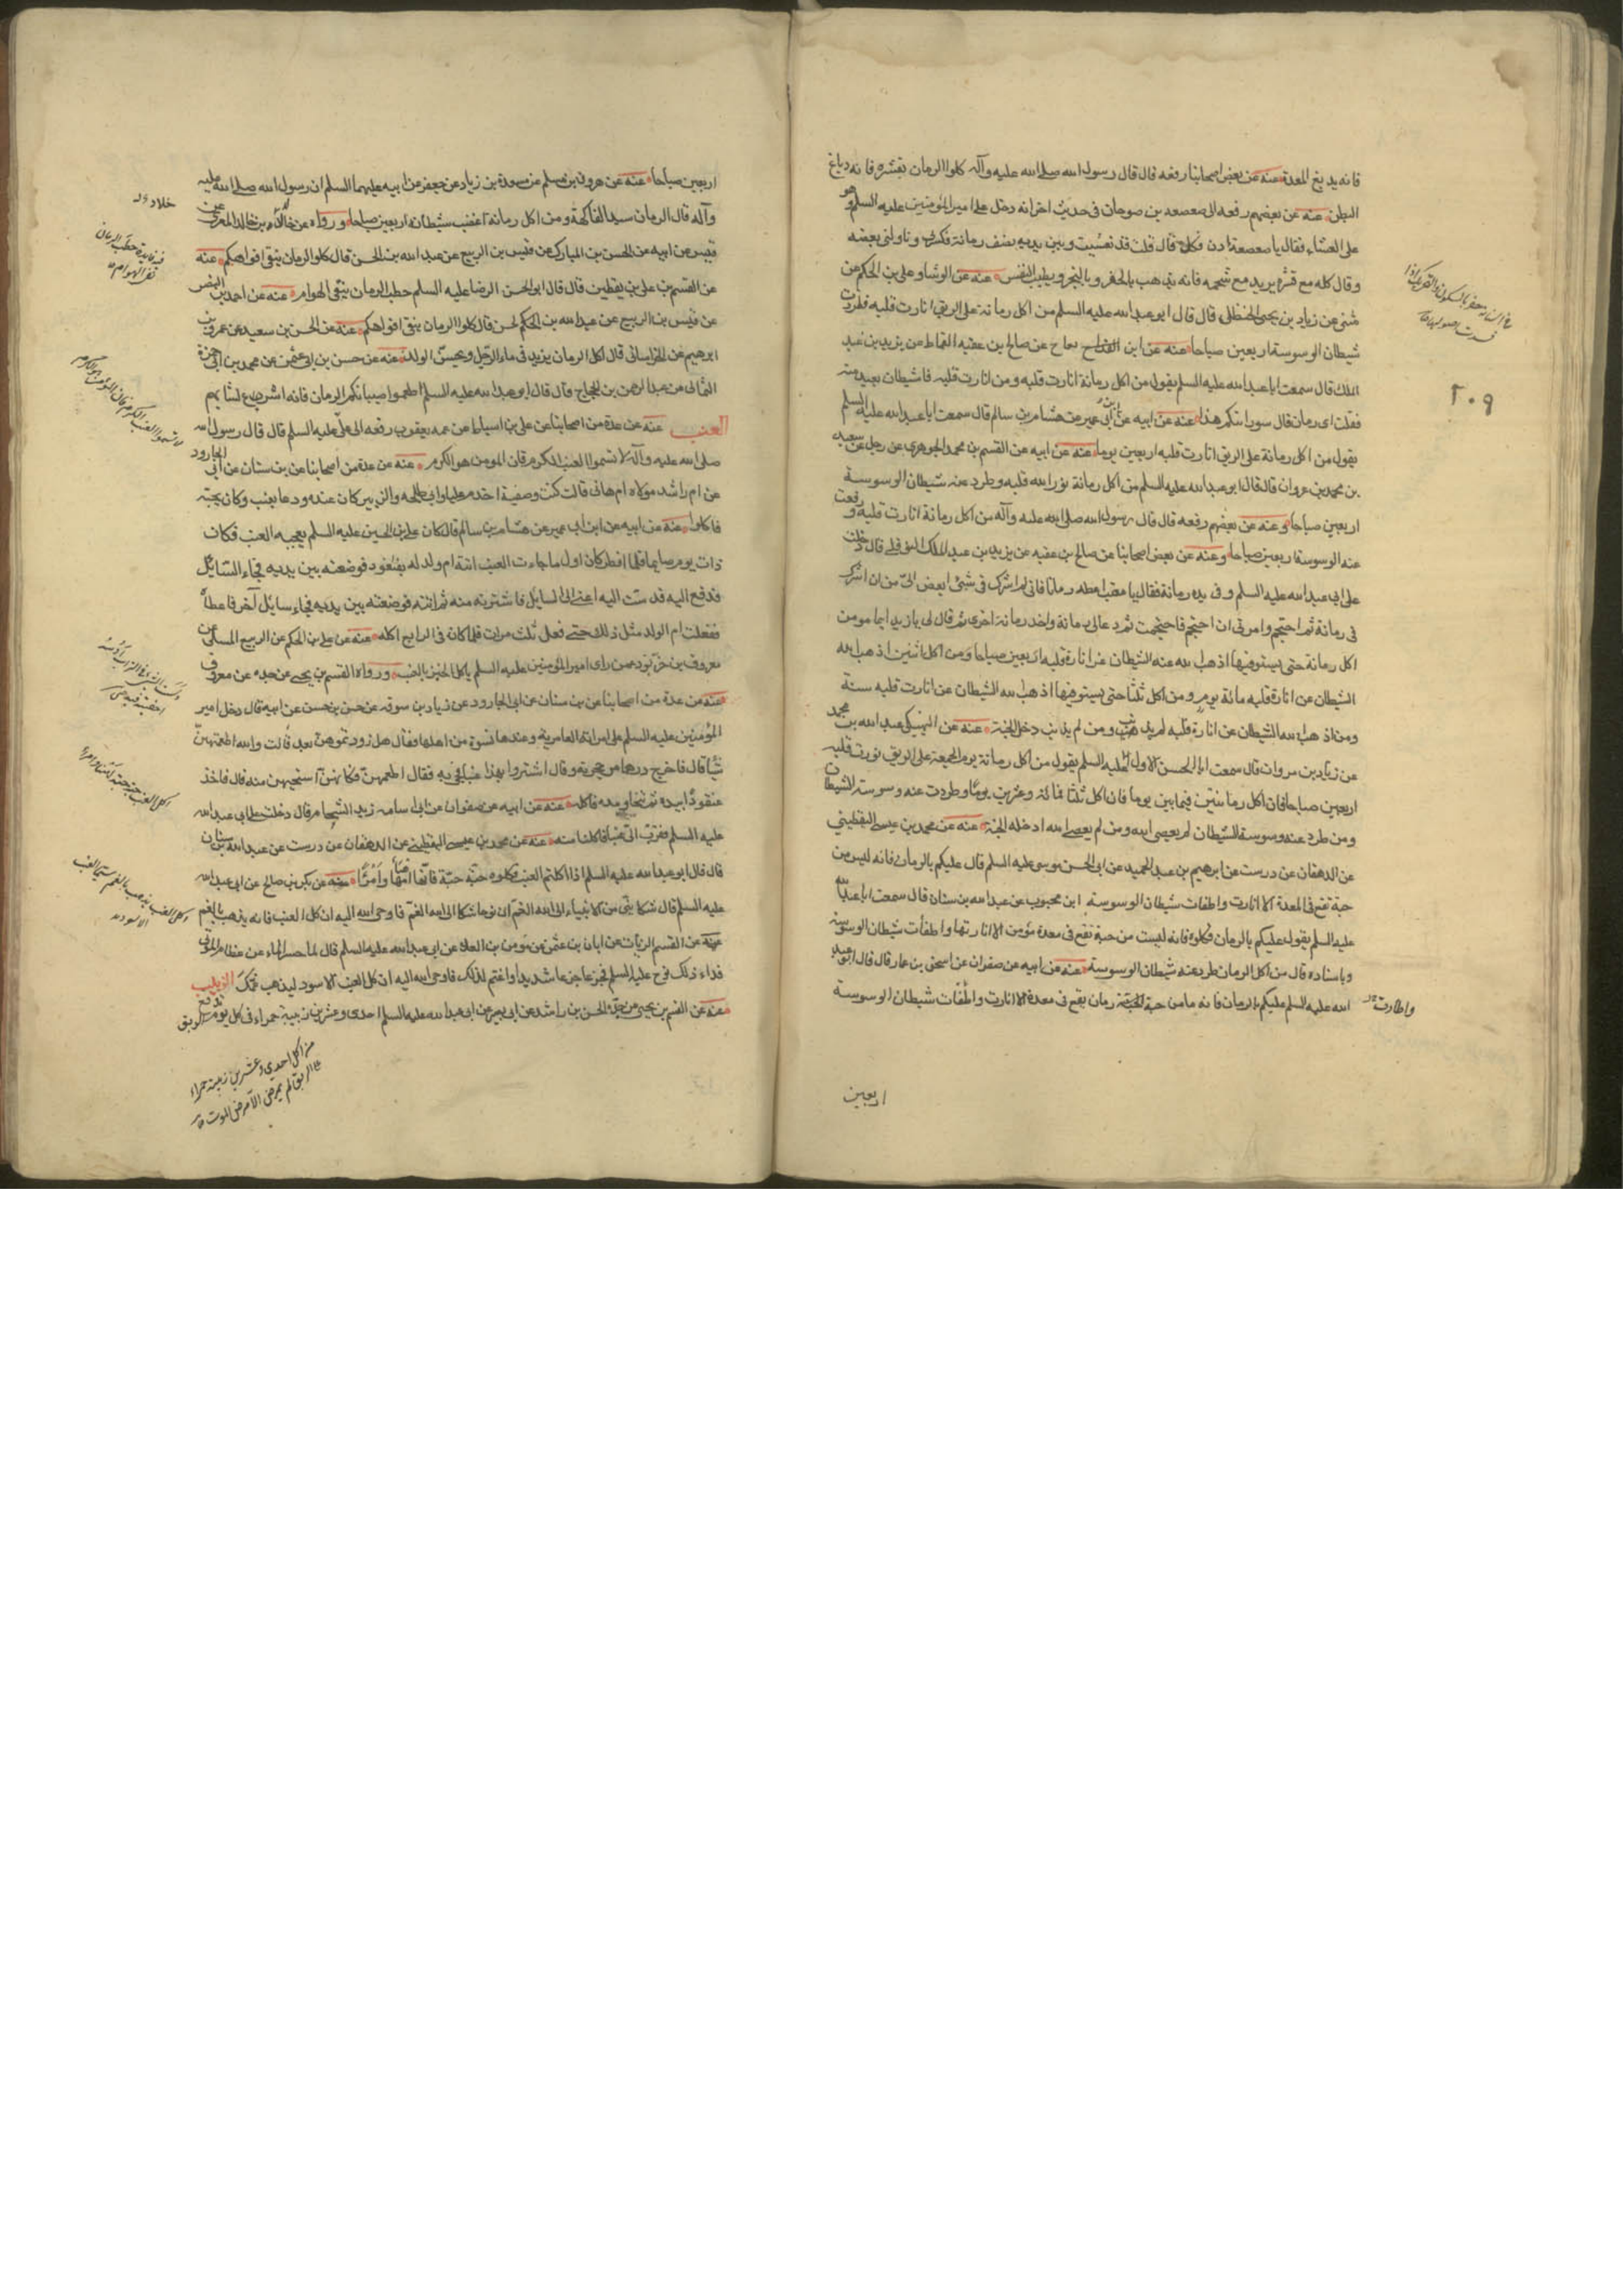 فانه يدبغ المعدة عنه عن بعض اصحابنا رفعه قال قال رسول الله صلى الله عليه وآله كلوا الرمان بقشره فانه دباغ
البطن عنه عن بعضهم رفعه الى صعصعه بن صوحان فى حديث اخر انه دخل على امير المؤمنين عليه السلم وهو
على العشاء فقال يا صعصعة ادن فكل قال قلت قد تعشيت وبين يديه نصف رمانة فكسر لى وناولنى بعضه
وقال كله مع قشره يريد مع شحمه فانه يذهب بالحفر وبالبخر ويطيب النفس عنه عن الوشا وعلى بن الحكم عن
مثنى عن زياد بن يحيى الحنظلى قال قال ابو عبد الله عليه السلم من اكل رمانة على الريق انارت قلبه فطردت
شيطان الوسوسة اربعين صباحا عنه عن ابن عن صالح بن عقبه القماط عن يزيد بن عبد
الملك قال سمعت ابا عبد الله عليه السلم يقول من اكل رمانة انارت قلبه ومن انارت قلبه فالشيطان بعيد منه
فقلت اى رمان قال سورانيكم هذا عنه عن ابيه عن ابن ابى عمير عن هشام بن سالم قال سمعت ابا عبد الله عليه السلم
يقول من اكل رمانة على الريق انارت قلبه اربعين يوما عنه عن ابيه عن القسم بن محمد الجوهرى عن رجل عن سعيد
بن محمد بن غزوان قال قال ابو عبد الله عليه السلم من اكل رمانة نور الله قلبه وطرد عنه شيطان الوسوسة
اربعين صباحا وعنه عن بعضهم رفعه قال قال رسول الله صلى الله عليه وآله من اكل رمانة انارت قلبه ورفعت
عنه الوسوسة اربعين صباحا وعنه عن بعض اصحابنا عن صالح بن عقبه عن يزيد بن عبد الملك النوفلى قال دخلت
على ابى عبد الله عليه السلم وفى يده رمانة فقال يا معتب اعطه رمانا فانى لم اشرك فى شئ ابغض الىّ من ان اشرك
فى رمانة ثم احتجم وامرنى ان احتجم فاحتجمت ثم دعا لى برمانة واخذ رمانة اخرى ثم قال لى يا يزيد ايما مومن
اكل رمانة حتى يستوفيها اذهب الله عنه الشيطان عن انارة قلبه اربعين صباحا ومن اكل اثنين اذهب الله
الشيطان عن انارة قلبه مائة يوم ومن اكل ثلثا حتى يستوفيها اذهب الله الشيطان عن انارت قلبه سنة
ومن اذهب الله الشيطان عن انارة قلبه لم يذنب ومن لم يذنب دخل الجنة عنه عن النهيكى عبد الله بن محمد
عن زياد بن مروان قال سمعت ابا الحسن الاول عليه السلم يقول من اكل رمانة يوم الجمعة على الريق نورت قلبه
اربعين صباحا فان اكل رمانتين فثمانين يوما فان اكل ثلثا فمائة وعشرين يوما وطردت عنه وسوسة الشيطان
ومن طرد عنه وسوسة الشيطان لم يعص الله ومن لم يعص الله ادخله الجنة عنه عن محمد بن عيسى اليقطينى
عن الدهقان عن درست عن ابرهيم بن عبد الحميد عن ابى الحسن موسى عليه السلم قال عليكم بالرمان فانه ليس من
حبة تقع فى المعدة الا انارت واطفات شيطان الوسوسة ابن محبوب عن عبد الله بن سنان قال سمعت ابا عبد الله
عليه السلم يقول عليكم بالرمان فكلوه فانه ليست من حبة تقع فى معدة مؤمن الا انارتها واطفأت شيطان الوسوسة
وباسناده قال من اكل الرمان طرد عنه شيطان الوسوسة عنه عن ابيه عن صفوان عن اسحق بن عمار قال قال ابو عبد
الله عليه السلم عليكم بالرمان فانه ما من حبة رمان تقع فى معدة الا انارت واطفأت شيطان الوسوسة
اربعين
واطارت
٢٠٩
اربعين صباحا عنه عن هرون بن مسلم عن مسعدة بن زياد عن جعفر عن ابيه عليهما السلم ان رسول الله صلى الله عليه
وآله قال الرمان سيد الفاكهة ومن اكل رمانة اغضب شيطانه اربعين صباحا ورواه عن بن خالد المقرى عن
قيس عن ابيه عن الحسن بن المبارك عن قيس بن الربيع عن عبد الله بن الحسن قال كلوا الرمان ينقى افواهكم عنه
عن القسم بن على بن يقطين قال قال ابو الحسن الرضا عليه السلم حطب الرمان ينفى الهوام عنه عن احمد بن النضر
عن قيس بن الربيع عن عبد الله بن الحكم لحسن قال كلوا الرمان ينقى افواهكم عنه عن الحسن بن سعيد عن عمرو بن
ابرهيم عن الخراسانى قال اكل الرمان يزيد فى ماء الرجل ويحسن الولد عنه عن حسن بن ابى عثمن عن محمد بن ابى حمزة
الثمالى عن عبد الرحمن بن الحجاج قال قال ابو عبد الله عليه السلم اطعموا صبيانكم الرمان فانه اسرع لشبابهم
العنب عنه عن عدة من اصحابنا عن على بن اسباط عن عمه يعقوب رفعه الى على عليه السلم قال قال رسول الله
صلى الله عليه وآله لا تسموا العنب الكرم فان المومن هو الكرم عنه عن عدة من اصحابنا عن بن سنان عن ابى الجارود
عن ام راشد مولاه ام هانى قالت كنت وصيفة اخدم عليا وان طلحه والزبير كان عنده ودعا بعنب وكان يحبه
فاكلوا عنه عن ابيه عن ابن ابى عمير عن هشام بن سالم قال كان على بن الحسين عليه السلم يعجبه العنب فكان
ذات يوم صايما فلما افطر كان اول ما جاءت العنب اتته ام ولد له بعنقود فوضعته بين يديه فجاء السائل
فدفع اليه فدست اليه اعنى الى السايل فاشترته منه ثم اتته فوضعته بين يديه فجاء سايل آخر فاعطاه
ففعلت ام الولد مثل ذلك حتى فعل ثلث مرات فلما كان فى الرابع اكله عنه عن على بن الحكم عن الربيع المسلى عن
معروف بن خربوذ عمن راى امير المؤمنين عليه السلم ياكل الخبز بالعنب ورواه القسم بن يحيى عن جده عن معروف
عنه عن عدة من اصحابنا عن بن سنان عن ابى الجارود عن زياد بن سوقه عن حسن بن حسن عن ابيه قال دخل امير
المؤمنين عليه السلم على امراته العامرية وعندها نسوة من اهلها فقال هل زودتموهن بعد قالت والله ما اطعمتهن
شيئا قال فاخرج درهما من حجزته وقال اشتروا بهذا عنبا فجئ به فقال اطعمهن فكانهن استحيين منه قال فاخذ
عنقودا بيده ثم تنحا وحده فاكله عنه عن ابيه عن صفوان عن ابى اسامه زيد الشحام قال دخلت على ابى عبد الله
عليه السلم فقرب الىّ عنبا فاكلنا منه عنه عن محمد بن عيسى اليقطينى عن الدهقان عن درست عن عبد الله بن سنان
قال قال ابو عبد الله عليه السلم اذا اكلتم العنب فكلوه حبّة حبّة فانها اهنأ وامرأ عنه عن بكر بن صالح عن ابى عبد الله
عليه السلم قال شكا نبى من الانبياء الى الله الغمّ ان نوحا شكا الى الله الغمّ فاوحى الله اليه ان كل العنب فانه يذهب بالغم
عنه عن القسم الزيات عن ابان بن عثمن عن موسى بن العلا عن ابى عبد الله عليه السلم قال لما حسر الماء عن عظام الموتى
فراى ذلك نوح عليه السلم فجزع جزعا شديدا واغتم لذلك فاوحى الله اليه ان كل العنب الاسود ليذهب غمّك الزبيب
عنه عن القسم بن يحيى عن جدّه الحسن بن راشد عن ابى بصير عن ابى عبد الله عليه السلم احدى وعشرين زبيبة حمراء فى كل يوم على الريق
لا تسموا العنب الكرم فان المؤمن هو الكرم
اكل العنب حبة حبة اهنأ وامرأ
وكل العنب يذهب بالغم سيما العنب
الاسود
من اكل احدى وعشرين زبيبة حمراء
على الريق لم يمرض الا مرض الموت